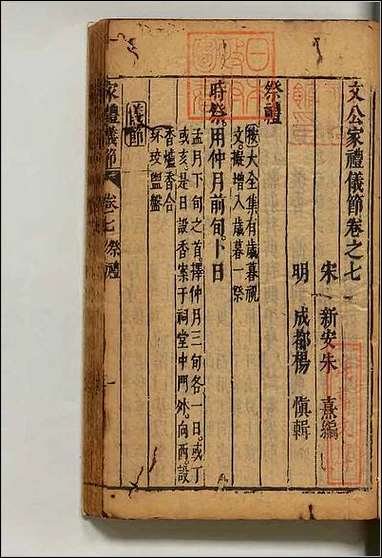 文公家禮儀節卷之七
宋 新安朱 熹編
明 成都楊 慎輯
祭禮
按大全集有歲暮祝
文擬增入歲暮一祭
時祭用仲月前旬卜日
孟月下旬之首擇仲月三旬各一日或丁
或亥是日設香案于祠堂中門外向西設
香爐香合
环珓盥盤
儀節
家禮儀節 卷之七 祭禮 一